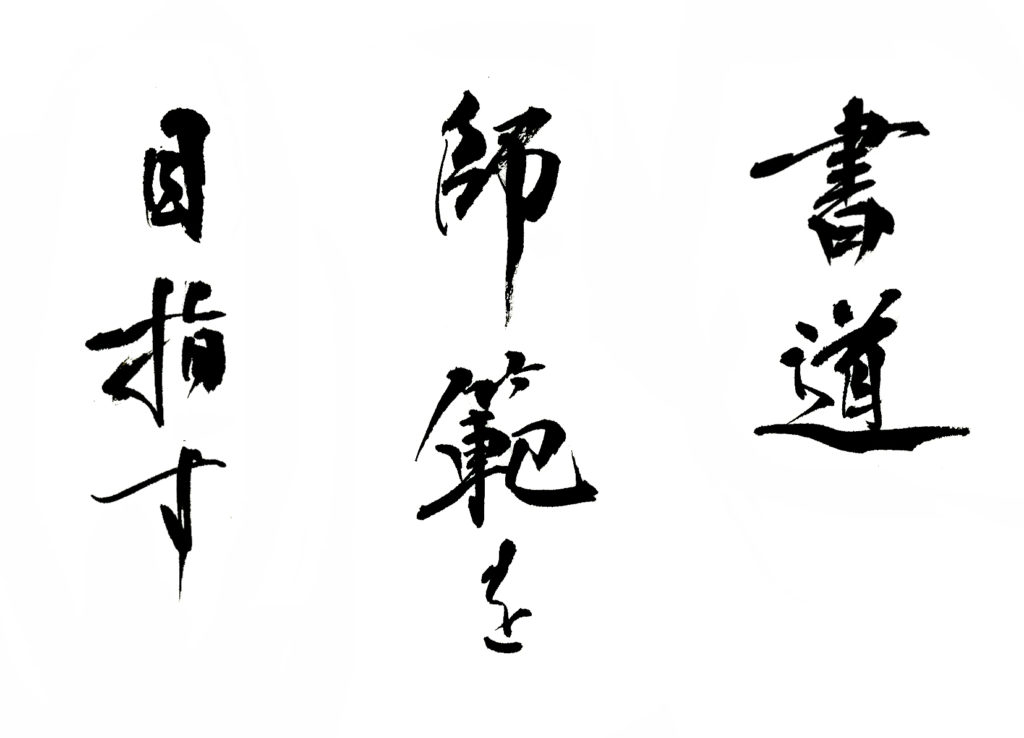 書道
師範を
目指す